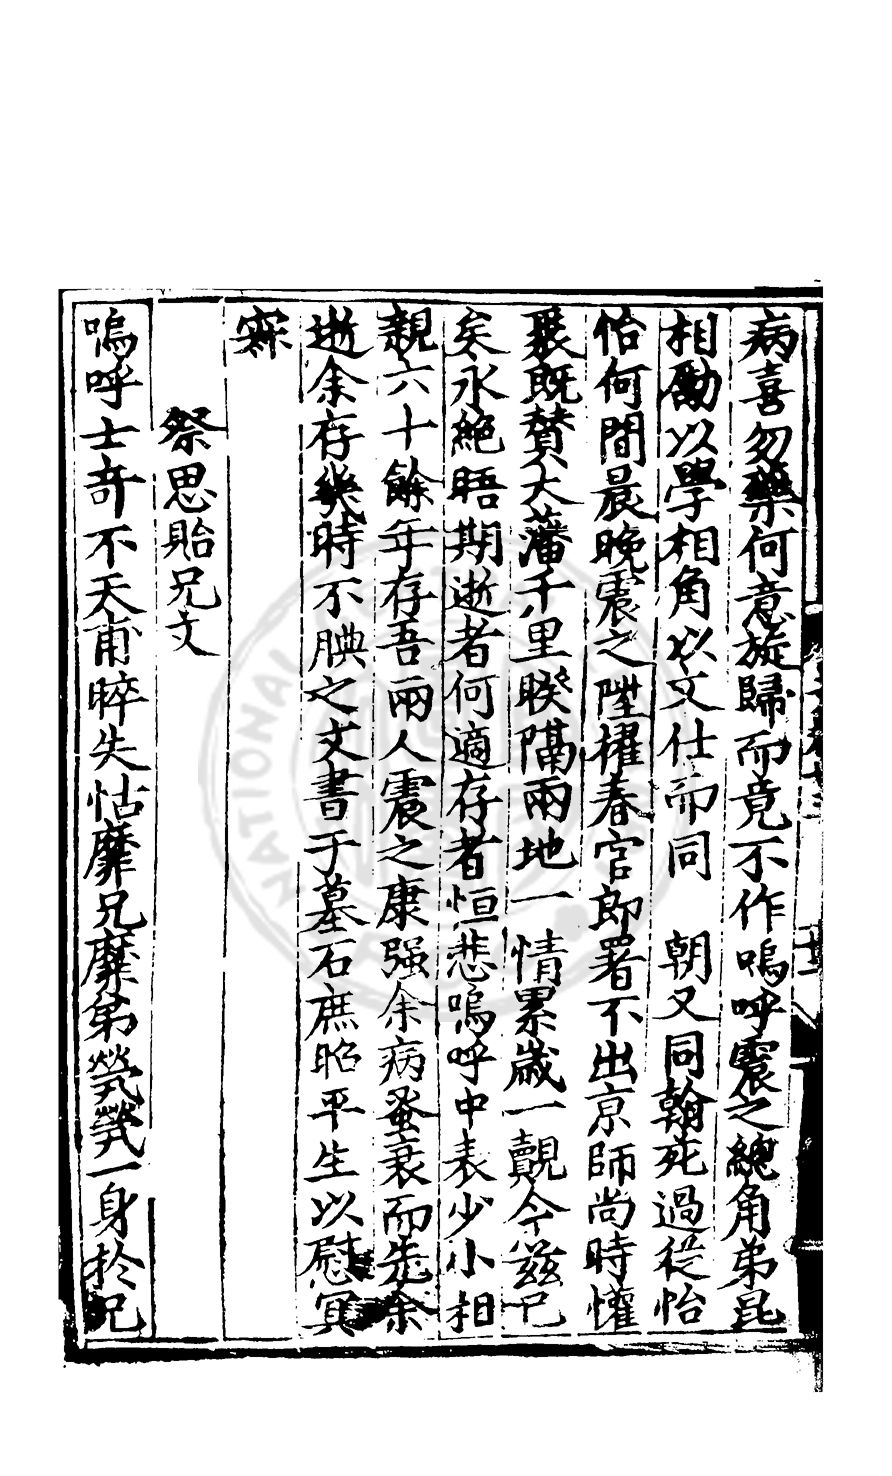 病喜勿藥何意旋歸而竟不作嗚呼震之總角弟昆
相勵以學相角以文仕而同　朝又同翰苑過從怡
怡何間晨晚震之陞擢春官郎署不出京師尚時懽
聚既贊大藩千里睽隔兩地一情累歲一覿今茲已
矣永絶晤期逝者何適存者恒悲嗚呼中表少小相
親六十餘年存吾兩人震之康强余病蚤衰而先余
逝余存幾時不腆之文書于墓石庶昭平生以慰冥
寐
祭思貽兄文
嗚呼士奇不天甫晬失怙靡兄靡弟煢煢一身於兄
NATIONAL